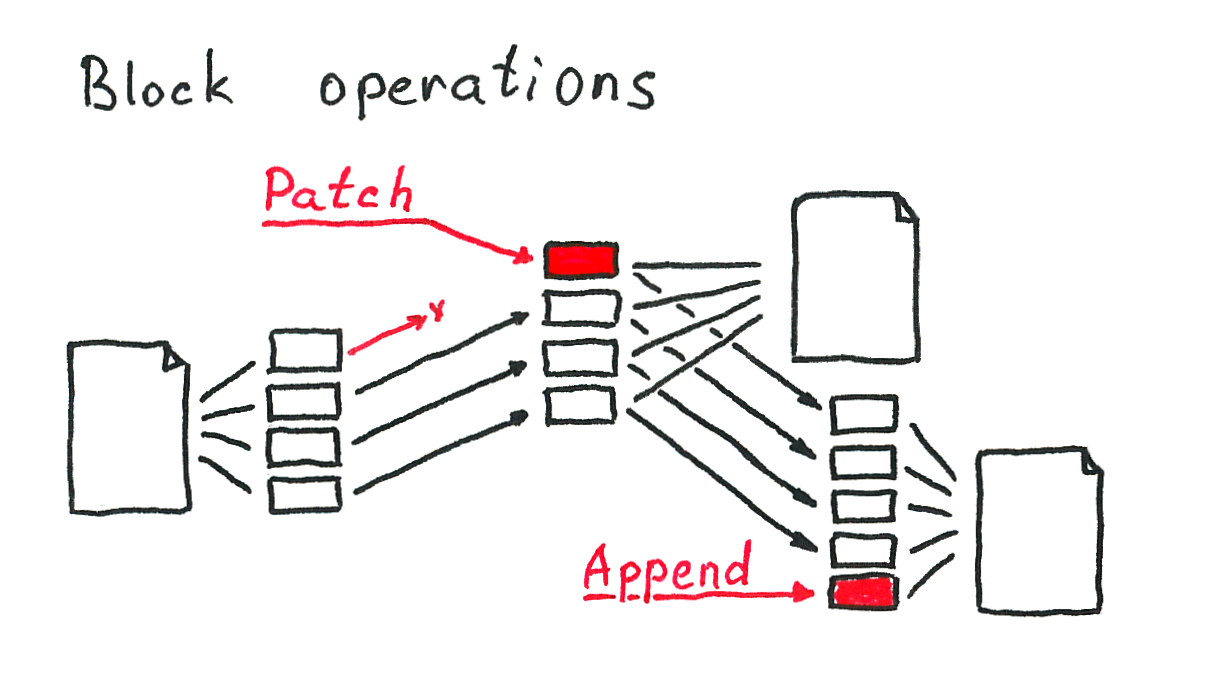 Block operations
Patch
Append